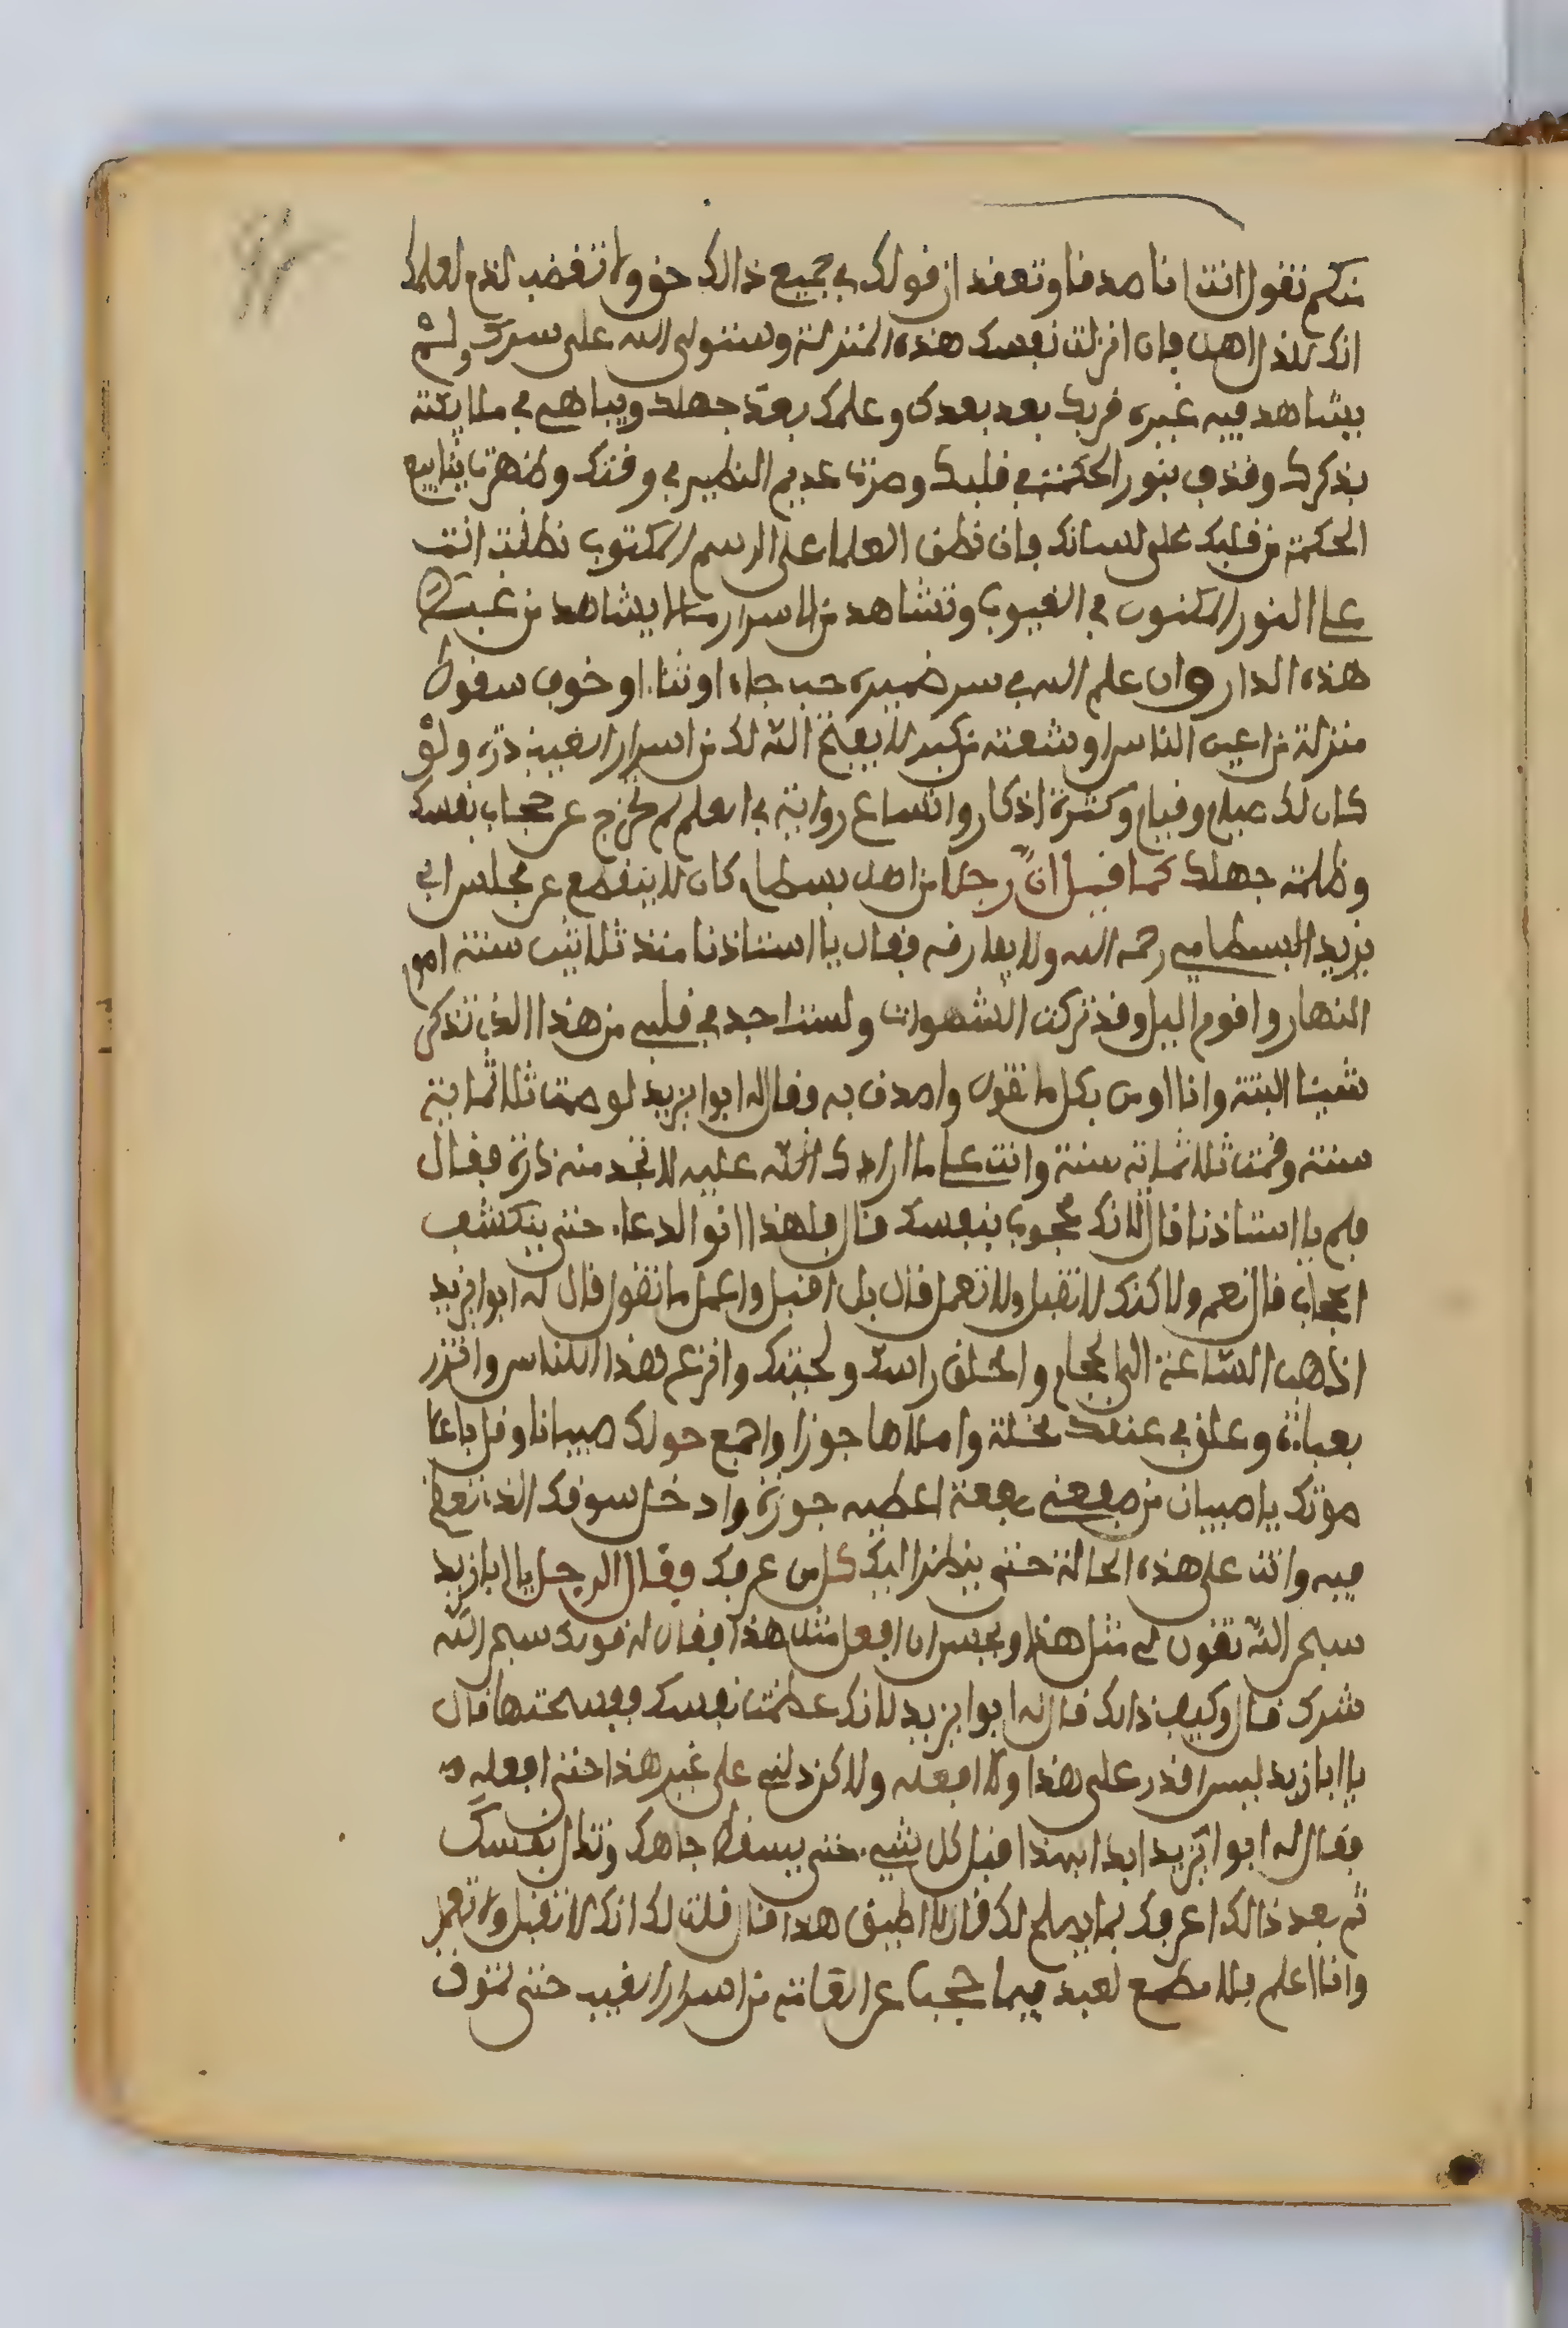 منكم تقول انت انا صدقنا وتعقد ان قولك في جميع ذالك حق ولا تغضب لذم لعلمك
انك للذل اهل فان انزلت نفسك هذه المنزلة وستولى الله على سرك ولم
يشاهد فيه غيره قربك بعد بعدك وعلمك بعد جهلك ويباهي في ملايكته
بذكرك وقذف بنور الحكمة في قلبك وصرت عديم النظير في وقتك وظهرت ينابيع
الحكمة من قلبك على لسانك فان نطق العلما على الرسم المكتوب نطقت انت
على النور المكنون في الغيوب وتشاهد من الاسرار ما لا يشاهد من غيبت
هذه الدار وان علم الله في سر ضميره حب جاه او ثنا. او خوف سقوط
منزلة من اعين الناس او شعبة من كبر لا يفتح الله لك من اسرار الغيب ذرة ولو
كان لك صيام وقيام وكثرة اذكار واتساع رواية في العلم لم تخرج عن حجاب نفسك
وظلمة جهلك كما قيل ان رجلا من اهل بسطام كان لا ينقطع عن مجلس ابي
يزيد البسطامي رحمه الله ولا يفارقه فقال يا استاذنا منذ ثلاثين سنة اصوم
النهار واقوم اليل وقد تركت الشهوات ولست اجد في قلبي من هذا الذي تذكر
شيئا البتة وانا اومن بكل ما تقول واصدق به وقال له ابوا يزيد لو صمت ثلاثماية
سنة وقمت ثلاثماية سنة وانت على ما اراك الله عليه لا تجد منه ذرة فقال
فلم يا استاذنا قال لانك محجوب بنفسك قال فلهذا دوا لدعا. حتى ينكشف
الحجاب قال نعم ولاكنك لا تقبل ولا تعمل قال بل اقبل واعمل ما تقول قال له ابوا يزيد
اذهب الساعة الى الحجام واحلق راسك ولحيتك وانزع هذا اللباس واتزر
بعباءة وعلق في عنقك مخلة واملاها جوزا واجمع حولك صبيانا وقل باعلا
صوتك يا صبيان من صفعني صفعة اعطيه جوزة وادخل سوقك الذي تعظم
فيه وانت على هذه الحالة حتى ينظر اليك كل من عرفك وقال الرجل يا ابا زيد
سبحن الله تقول لي مثل هذا ويحسن ان افعل مثل هذا فقال له قولك سبحن الله
شرك قال وكيف ذالك قال له ابوا يزيد لانك عظمت نفسك فسبحتها قال
يا ابا زيد ليس اقدر على هذا ولا افعله ولاكن دلني على غير هذا حتى افعله
فقال له ابوا يزيد ابدا بهذا قبل كل شيء. حتى يسقط جاهك وتذل نفسك
ثم بعد ذالك اعرفك بما يصلح لك قال لا اطيق هذا قال قلت لك انك لا تقبل ولا تعمل
وانا اعلم بلا مطمع لعبد فيما حجب عن العامة من اسرار الغيب حتى تموت